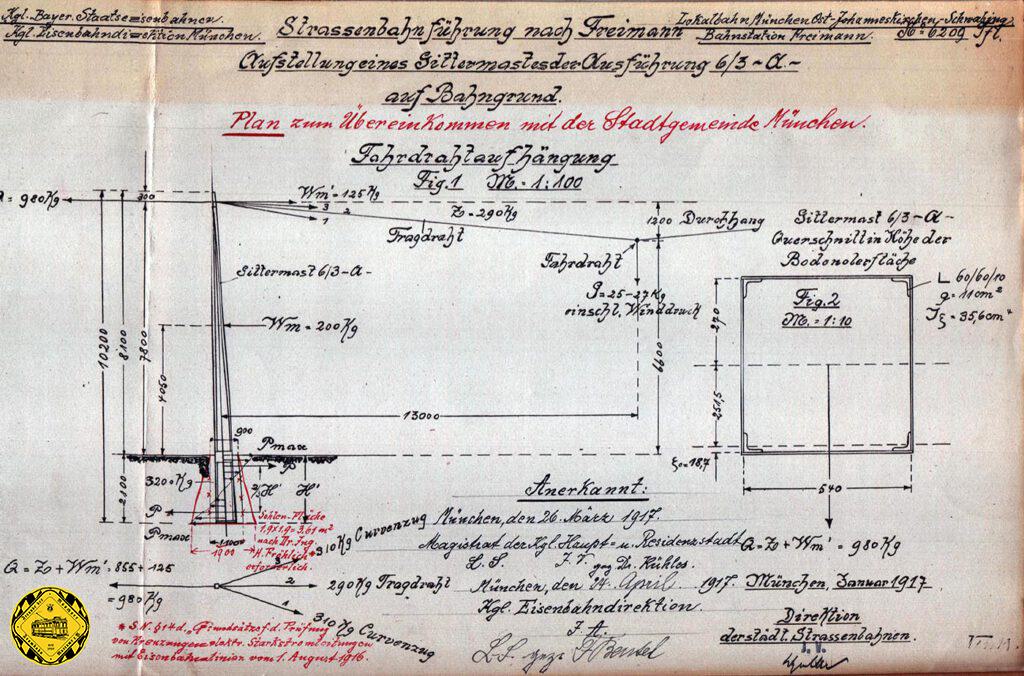 Kgl. Bayer. Staatseisenbahnen.
Kgl. Eisenbahndirektion München.
Strassenbahnführung nach Freimann
Lokalbahn München Ost-Johanneskirchen-Schwabing.
Bahnstation Freimann.
6209
Aufstellung eines Gittermastes der Ausführung 6/3-A-
auf Bahngrund.
Plan zum Übereinkommen mit der Stadtgemeinde München.
Fahrdrahtaufhängung
Fig.1 M. = 1:100
= 980 Kg
300
Wm' = 125 Kg
3
2
1
Z = 290 Kg
Tragdraht
1200 Durchhang
Fahrdraht
g = 25-27 Kg
einschl. Winddruck
Gittermast 6/3-A-
Querschnitt in Höhe der
Bodenoberfläche
L 60/60/10
g = 11 cm²
Jξ = 35,6 cm⁴
Fig.2
M. = 1:10
270
251,5
ξ₀ = 18,7
540
Gittermast 6/3-A-
Wm = 200 Kg
10200
8100
7800
4050
6600
13000
900
P max
P
2100
3200 Kg
P
P max
⅔ H'
H'
1100
1900
Sohlen-Fläche
1,9 x 1,9 = 3,61 m²
nach Dr. Ing.
H. Fröhlich*
erforderlich.
310 Kg Curvenzug
Q = Z + Wm' = 855 + 125
= 980 Kg
3
2
290 Kg Tragdraht
1
310 Kg Curvenzug
Anerkannt:
München, den 26. März 1917.
Magistrat der Kgl. Haupt- u. Residenzstadt
L. S. J. V. gez. Dr. Kühles.
München, den 24. April 1917.
Kgl. Eisenbahndirektion.
J. A.
L.S. gez.
Q = Z + Wm' = 980 Kg
München, Januar 1917
Direktion
der städt. Strassenbahnen.
J. V.
* S. N. § 14 d. „Grundsätze f. d. Prüfung
von Kreuzungen elektr. Starkstromleitungen
mit Eisenbahnlinien vom 1. August 1916.